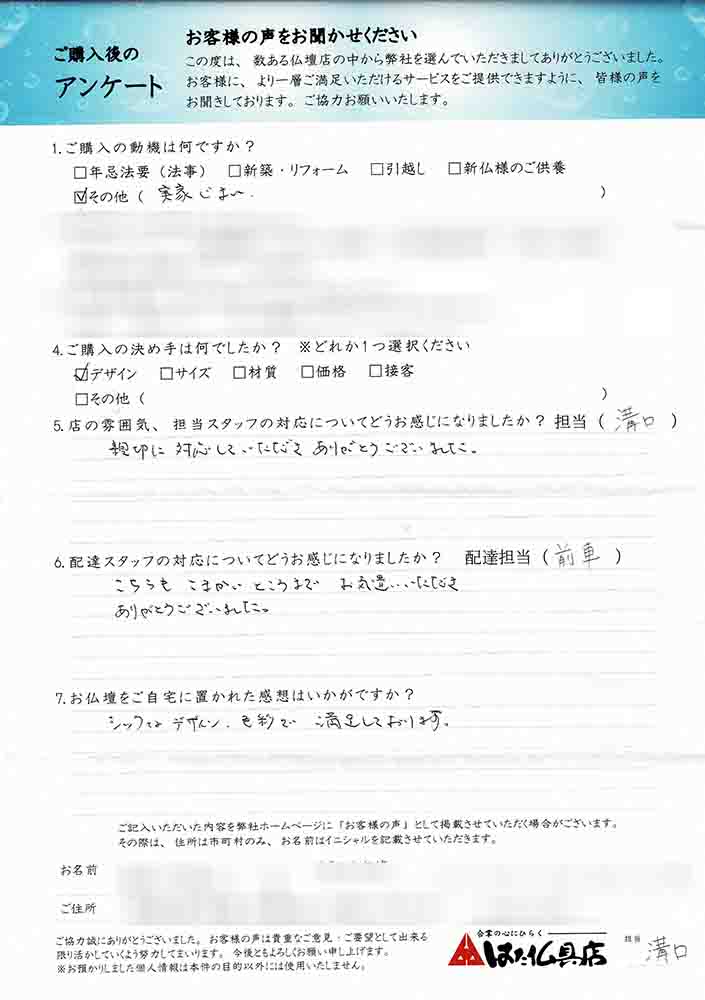 ご購入後の
アンケート
お客様の声をお聞かせください
この度は、数ある仏壇店の中から弊社を選んでいただきましてありがとうございました。
お客様に、より一層ご満足いただけるサービスをご提供できますように、皆様の声を
お聞きしております。ご協力お願いいたします。
1.ご購入の動機は何ですか？
□年忌法要（法事） □新築・リフォーム □引越し □新仏様のご供養
☑その他（ 実家じまい. ）
4.ご購入の決め手は何でしたか？ ※どれか1つ選択ください
☑デザイン □サイズ □材質 □価格 □接客
□その他（ ）
5.店の雰囲気、担当スタッフの対応についてどうお感じになりましたか？担当（ 溝口 ）
親切に対応していただき ありがとうございました。
6.配達スタッフの対応についてどうお感じになりましたか？ 配達担当（ 前車 ）
こちらも こまかい ところまで お気遣いいただき
ありがとうございました。
7.お仏壇をご自宅に置かれた感想はいかがですか？
シックな デザイン、色彩で 満足しております。
ご記入いただいた内容を弊社ホームページに「お客様の声」として掲載させていただく場合がございます。
その際は、住所は市町村のみ、お名前はイニシャルを記載させていただきます。
お名前
ご住所
ご協力誠にありがとうございました。お客様の声は貴重なご意見・ご要望として出来る
限り活かしていくよう努力してまいります。今後ともよろしくお願い申し上げます。
※お預かりしました個人情報は本件の目的以外には使用いたしません。
合掌の心にひらく
はた仏具店
担当 溝口